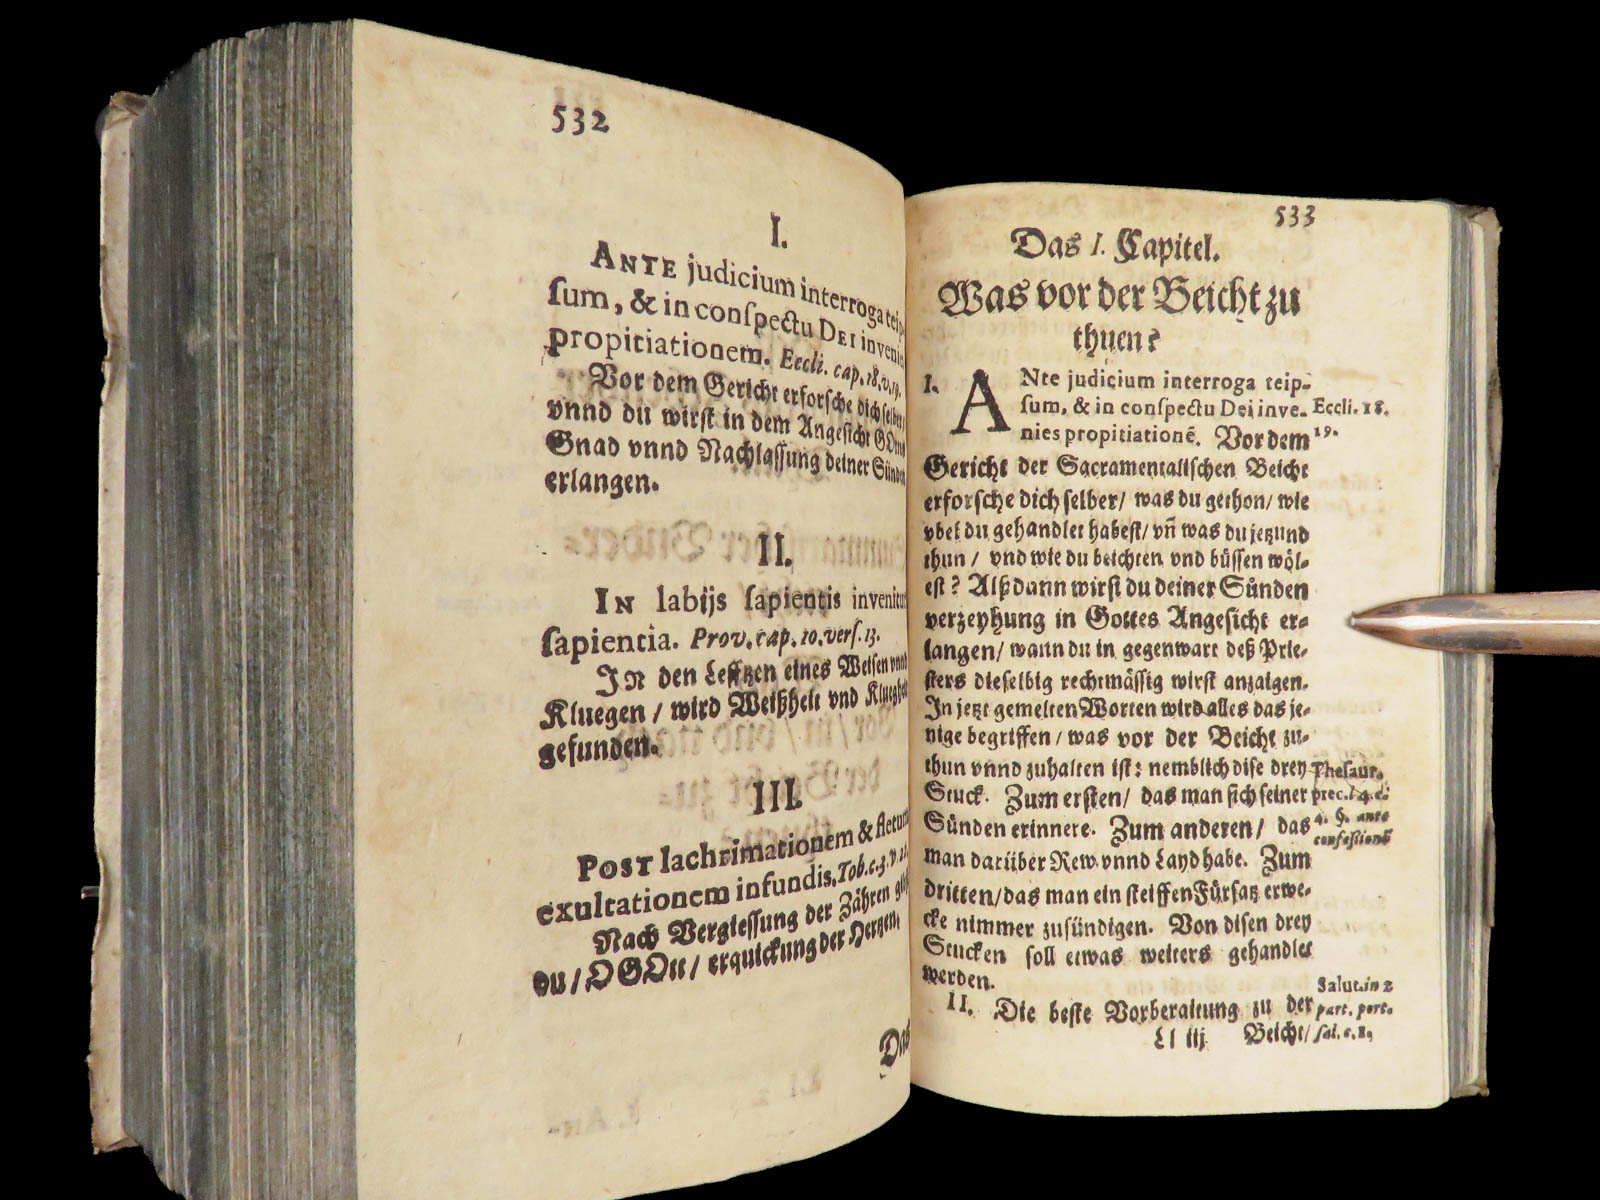 532
I.
ANTE judicium interroga teip
ſum, & in conſpectu DEI invenies
propitiationem. Eccli. cap. 18. v. 19.
Vor dem Gericht erforſche dich ſelber/
vnnd du wirſt in dem Angeſicht GOttes
Gnad vnnd Nachlaſſung deiner Sünden
erlangen.
II.
IN labijs ſapientis invenitur
ſapientia. Prov. cap. 10. verſ. 13.
IN den Lefftzen eines Weiſen vnnd
Kluegen / wird Weißheit vnd Kluegheit
gefunden.
III.
POST lachrimationem & fletum
exultationem infundis. Tob. c. 3. v. 22.
Nach Vergieſſung der Zähren
du / O GOtt / erquickung der Hertzen
Das
533
Das I. Capitel.
Was vor der Beicht zu
thuen?
I. ANte judicium interroga teip-
ſum, & in conſpectu Dei inve- Eccli. 18.
nies propitiationē. Vor dem 19.
Gericht der Sacramentaliſchen Beicht
erforſche dich ſelber/ was du gethon/ wie
vbel du gehandlet habeſt/ vñ was du jetzund
thun / vnd wie du beichten vnd büſſen wöl-
eſt? Alßdann wirſt du deiner Sünden
verzeyhung in Gottes Angeſicht er-
langen/ wann du in gegenwart deß Prie-
ſters dieſelbig rechtmäſſig wirſt anzaigen.
In jetzt gemelten Worten wird alles das je-
nige begriffen / was vor der Beicht zu-
thun vnnd zuhalten iſt: nemblich diſe drey Theſaur.
Stuck. Zum erſten/ das man ſich ſeiner prec. l. 4. c.
Sünden erinnere. Zum anderen/ das 4. §. ante
man darüber Rew vnnd Layd habe. Zum confeſſionē
dritten/ das man ein ſteiffen Fürſatz erwe-
cke nimmer zuſündigen. Von diſen drey
Stucken ſoll etwas weiters gehandlet
werden.
II. Die beſte Vorberaitung zu der
Salut. in 2
part. port.
Ll iij Beicht/ ſal. c. 1,